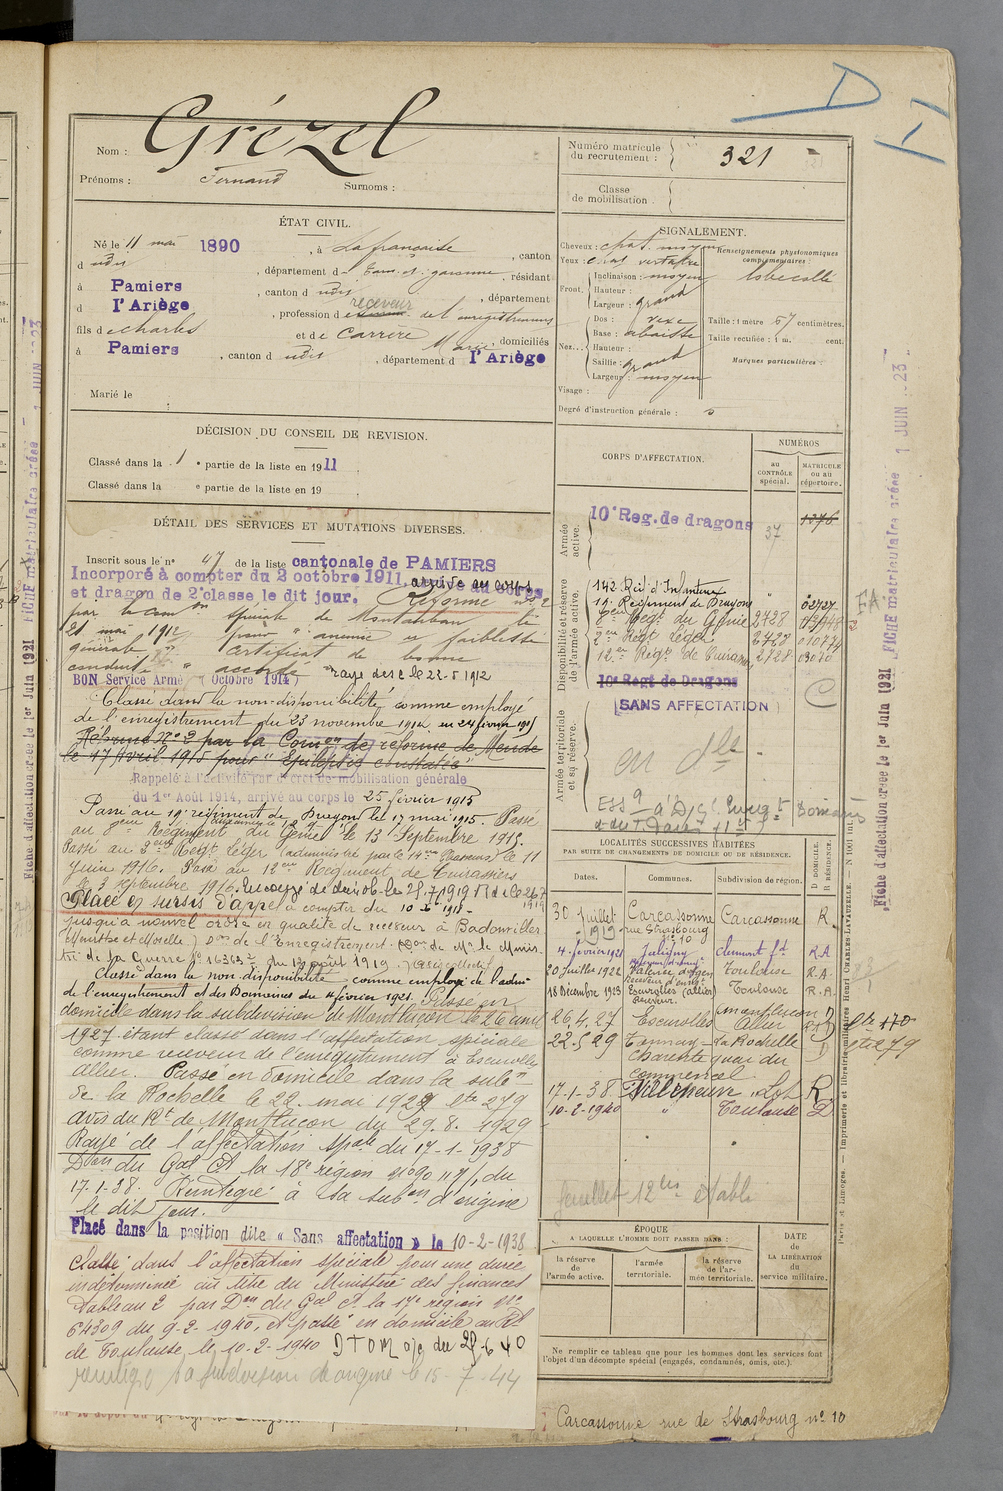 D
Grézel
Nom :
Prénoms : Fernand Surnoms :
Numéro matricule
du recrutement : 321
Classe
de mobilisation
ÉTAT CIVIL.
Né le 11 mai 1890, à Lafrançaise, canton
d udit, département d Tarn et garonne, résidant
à Pamiers, canton d udit, département
d l'Ariège, profession d receveur de l'enregistrement
fils de Charles et de Carrère Marie, domiciliés
à Pamiers, canton d udit, département d l'Ariège
Marié le
SIGNALEMENT.
Cheveux : chat. moyen
Yeux :
Front. Inclinaison : moyen
Hauteur :
Largeur : grand
Nez... Dos : vexe
Base : abaissé
Hauteur :
Saillie : grand
Largeur : moyen
Visage :
Renseignements physionomiques
complémentaires :
Taille : 1 mètre 67 centimètres.
Taille rectifiée : 1 m. cent.
Marques particulières :
Degré d'instruction générale : 3
DÉCISION DU CONSEIL DE REVISION.
Classé dans la 1 e partie de la liste en 1911
Classé dans la e partie de la liste en 19
DÉTAIL DES SERVICES ET MUTATIONS DIVERSES.
Inscrit sous le n° 47 de la liste cantonale de PAMIERS
Incorporé à compter du 2 octobre 1911, arrivé au corps
et dragon de 2e classe le dit jour. Réformé n° 2
par la Comon spéciale de Montauban le
21 mai 1912 pour "anémie et faiblesse
générale" Certificat de bonne
conduite "accordé" rayé des c. le 22-5 1912
BON Service Armé Octobre 1914
Classé dans la non-disponibilité comme employé
de l'enregistrement du 23 novembre 1914 au 24 février 1915
Réformé N° 2 par la Comon de réforme de Mende
le 17 Avril 1915 pour "Epilepsie constatée"
Rappelé à l'activité par décret de mobilisation générale
du 1er Août 1914, arrivé au corps le 25 février 1915
Passé au 19e régiment de Dragons le 17 mai 1915. Passé
au 8eme Régiment du Génie le 13 Septembre 1915.
Passé au 2eme Régt Léger (administré par le 14e Hussards) le 11
Juin 1916. Passé au 12e Régiment de Cuirassiers
le 3 septembre 1916. Envoyé de demob. le 25.7.1919
Placé en sursis d'appel à compter du 10
jusqu'à nouvel ordre en qualité de receveur à Badonviller
(Meurthe et Moselle) Don de l'Enregistrement (Don de Mr le Minis-
tre de la Guerre N° 16363 du 13 août 1919)
Classé dans la non-disponibilité comme employé de l'adm
de l'enregistrement et des Domaines du 4 février 1921. Passé en
domicile dans la subdivision de Montluçon le 26 avril
1927 étant classé dans l'affectation spéciale
comme receveur de l'enregistrement à Escurolles
Allier. Passé en domicile dans la subon
de la Rochelle le 22 mai 1929 Cte 279
avis du Rt de Montluçon du 29.8.1929
Rayé de l'affectation spale du 17-1-1938
Don du Gal Ct la 18e région n° 90, du
17-1-38. Réintégré à sa subon d'origine
le dit jour.
Placé dans la position dite « Sans affectation » le 10-2-1938
Classé dans l'affectation spéciale pour une durée
indéterminée au titre du Ministère des finances
Tableau 2 par Don du Gal Ct la 17e région N°
64309 du 9-2-1940, et passé en domicile au Rt
de Toulouse le 10-2-1940
réintégré sa subdivision d'origine le 15-7-44
CORPS D'AFFECTATION.
NUMÉROS
au
CONTRÔLE
spécial.
MATRICULE
ou au
répertoire.
Armée
active.
10e Reg. de dragons 37 1376
Disponibilité et réserve
de l'armée active.
142 Rét d'Infanterie
19e Régiment de Dragons
8eme Régt du Génie 2428
2eme Régt Léger 2427 010774
12eme Régt de Cuirass. 2428
10e Regt de Dragons
SANS AFFECTATION
C
Armée territoriale
et sa réserve.
en dle
LOCALITÉS SUCCESSIVES HABITÉES
PAR SUITE DE CHANGEMENTS DE DOMICILE OU DE RÉSIDENCE.
Dates. Communes. Subdivision de région. D DOMICILE. R RÉSIDENCE.
30 Juillet 1919 Carcassonne rue Strasbourg n° 10 Carcassonne R
4 février 1921 Juligny Clermont fd R.A
20 juillet 1922 Valence d'Agen Toulouse R.A.
18 Décembre 1923 Escurolles (Allier) Receveur Toulouse R.A.
26.4.27 Escurolles Montluçon Allier D
22.5.29 Tonnay-Charente quai du Commercel La Rochelle D
17-1-38 Villeneuve s. Lot R
10-2-1940 " Toulouse D
feuillet 12 bis établi
Cte 170
Cte 279
ÉPOQUE
A LAQUELLE L'HOMME DOIT PASSER DANS :
la réserve
de l'armée active.
l'armée
territoriale.
la réserve
de l'ar-
mée territoriale.
DATE
de
LA LIBÉRATION
du
service militaire.
Ne remplir ce tableau que pour les hommes dont les services font
l'objet d'un décompte spécial (engagés, condamnés, omis, etc.).
Carcassonne rue de Strasbourg n° 10
Paris et Limoges. — Imprimerie et librairie militaires Henri CHARLES-LAVAUZELLE.
FICHE matriculaire créée 1 JUIN 23
Fiche d'affectation créée le 1er Juin 1921